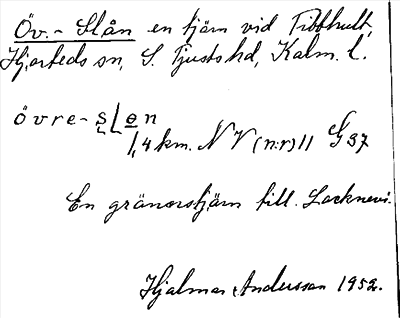 Öv.- Slån en tjärn vid Tibbhult,
Hjorteds sn, S. Tjusts hd, Kalm. l.
övre-slen
1,4 km. NV (n:r) 11 G 37
En gränstjärn till Locknevi.
Hjalmar Andersson 1952.